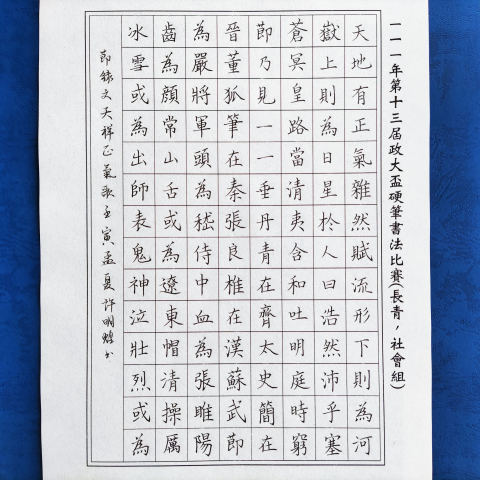 一一一年第十三屆政大盃硬筆書法比賽(長青,社會組)
天地有正氣雜然賦流形下則為河
嶽上則為日星於人曰浩然沛乎塞
蒼冥皇路當清夷含和吐明庭時窮
節乃見一一垂丹青在齊太史簡在
晉董狐筆在秦張良椎在漢蘇武節
為嚴將軍頭為嵇侍中血為張睢陽
齒為顏常山舌或為遼東帽清操厲
冰雪或為出師表鬼神泣壯烈或為
節錄文天祥正氣歌壬寅孟夏許明書